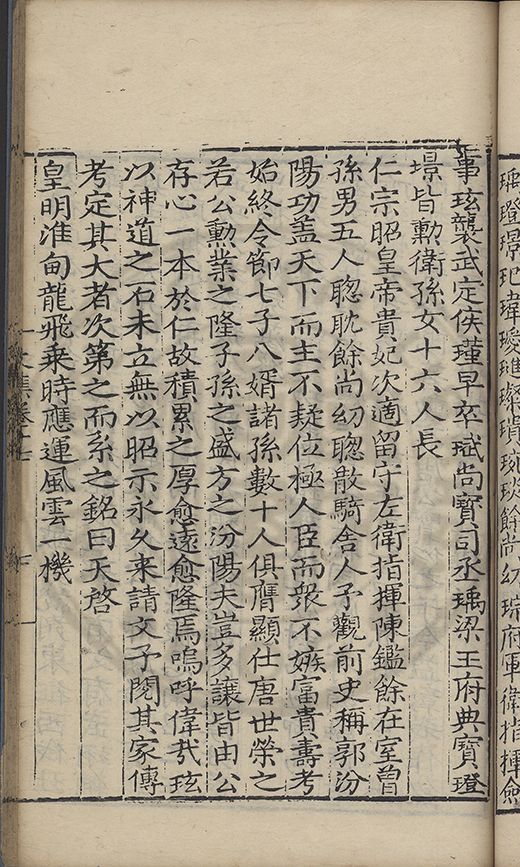 餘尚幼琮府軍衛指揮僉
事玹襲武定侯瑾早卒珷尚寶司丞瑀梁王府典寶璒
璟皆勳衛孫女十六人長
仁宗昭皇帝貴妃次適留守左衛指揮陳鑑餘在室曾
孫男五人聦耽餘尚幼聦散騎舍人予觀前史稱郭汾
陽功盖天下而主不疑位極人臣而衆不嫉富貴壽考
始終令節七子八婿諸孫數十人俱膺顯仕唐世榮之
若公勳業之隆子孫之盛方之汾陽夫豈多讓皆由公
存心一本於仁故積累之厚愈逺愈隆焉嗚呼偉㢤玹
以神道之石未立無以昭示永久来請文予閲其家傳
考定其大者次第之而系之銘曰天啓
皇明淮甸龍飛乗時應運風雲一機